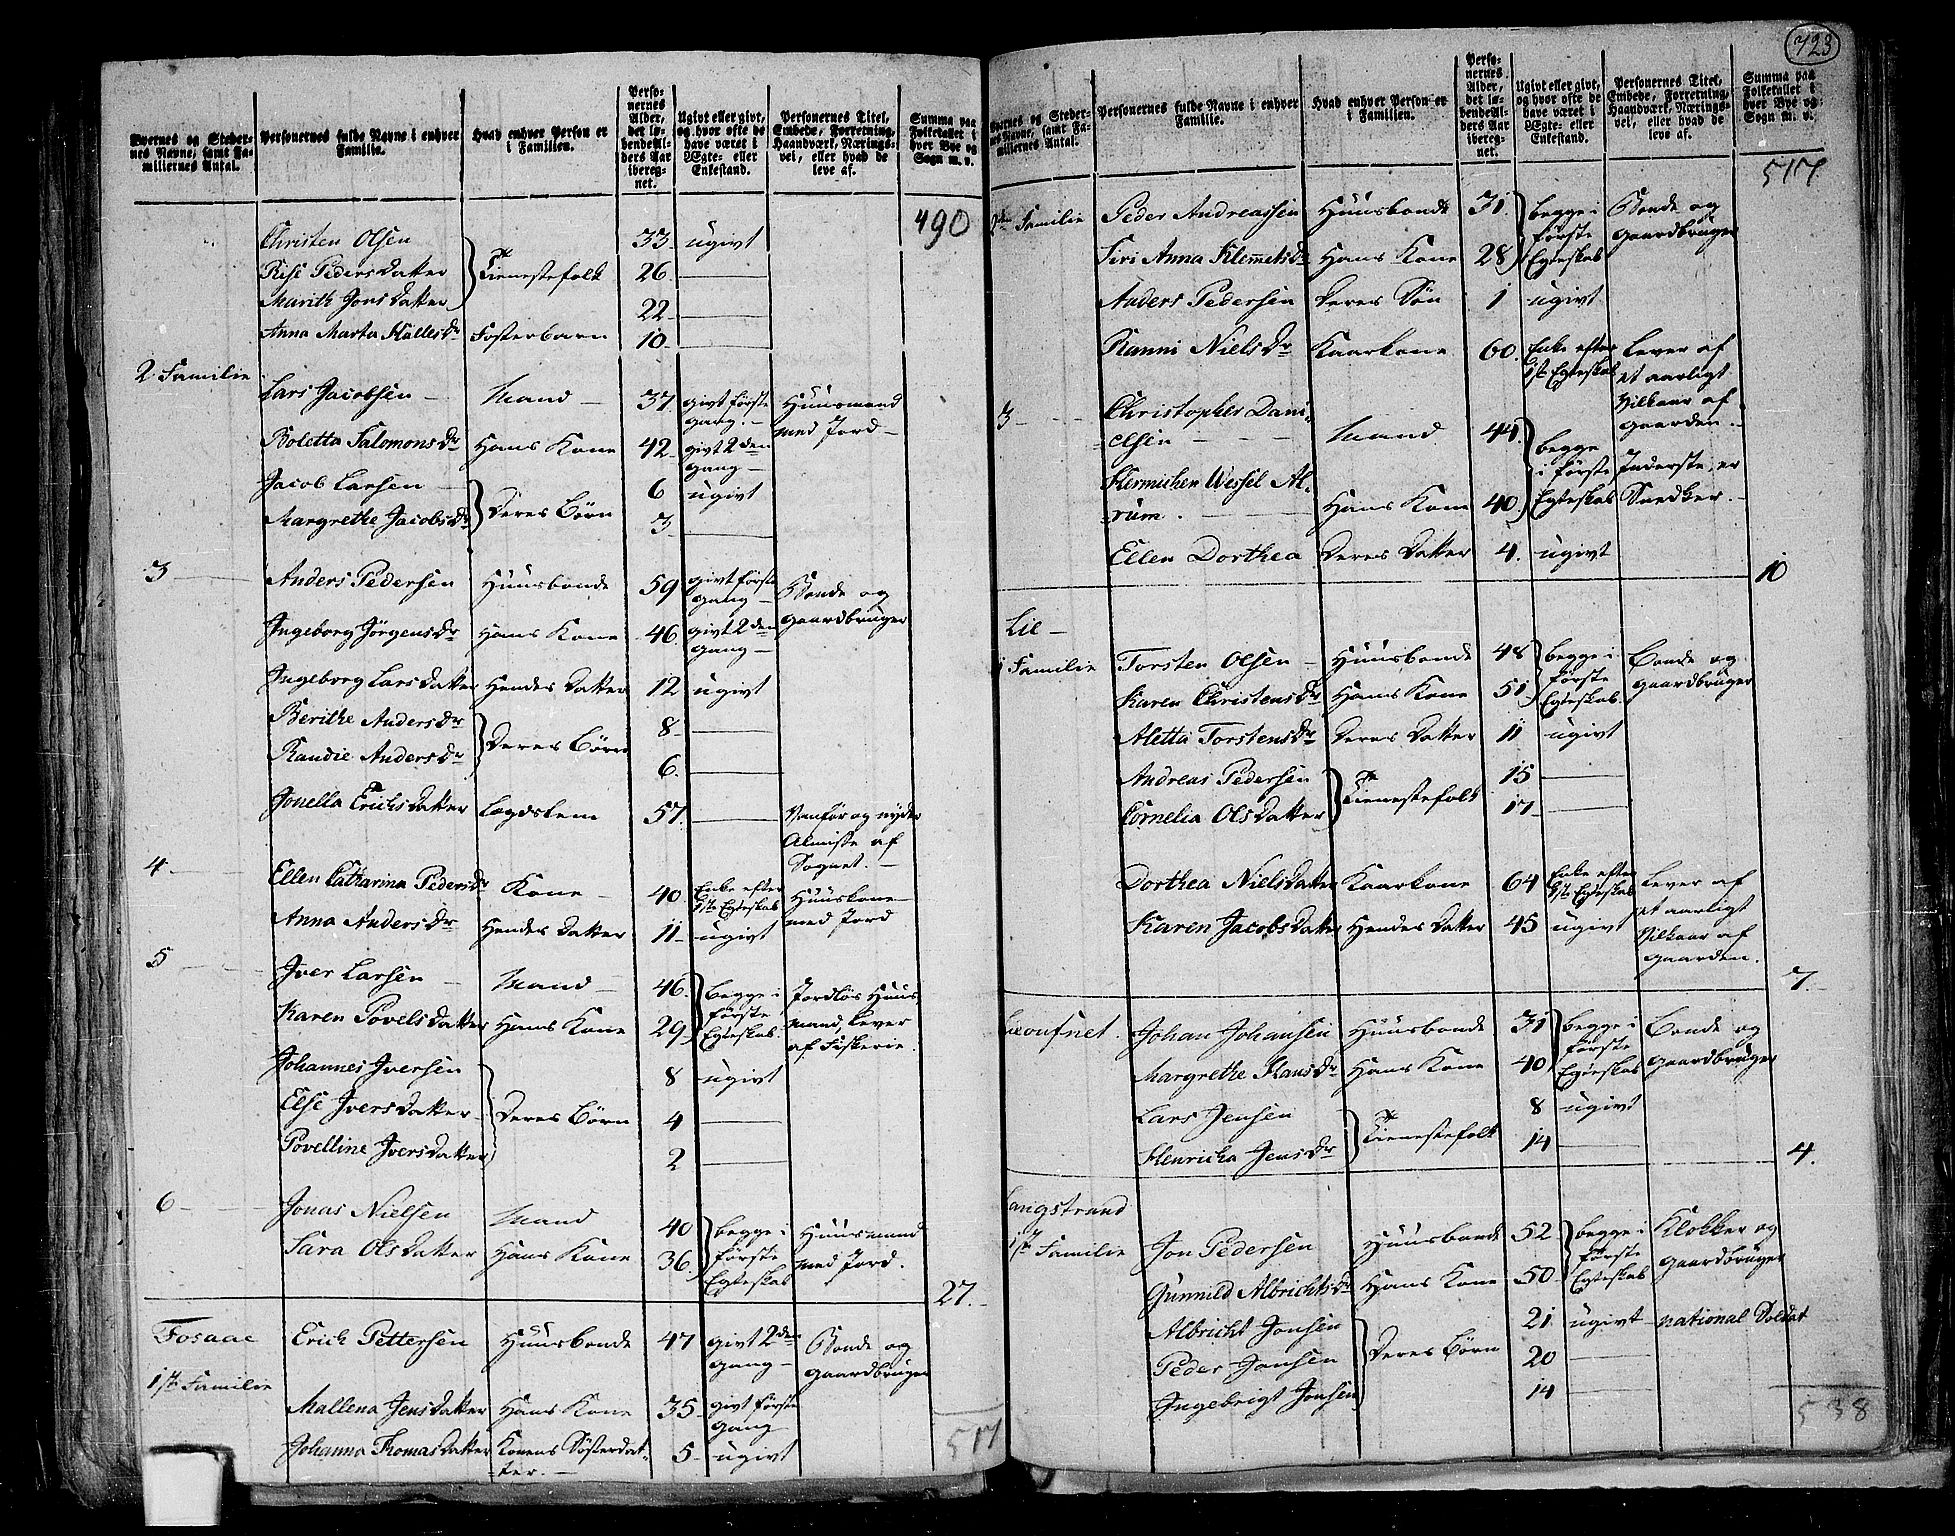 Byernes og Steder- nes Navne, samt Fa- miliernes Antal.
Personernes fulde Navne i enhver Familie.
Hvad enhver Person er i Familien.
Perso- nernes Alder, det lø- bende Al- ders Aar iberegnet.
Ugivt eller givt, og hvor ofte de have været i Ægte- eller Enkestand.
Personernes Titel, Embede, Forretning, Haandværk, Nærings- vei, eller hvad de leve af.
Summa paa Folketallet i hver Bye og Sogn m. v.
490
Christen Olsen } Tienestefolk 33 ugivt
Risi Pedersdatter 26 —
Marith Jonsdatter 22 —
Anna Marta Hallesdr Fosterbarn 10 —
2 Familie Lars Jacobsen — Mand — 37 givt første gang. — Huusmand med Jord —
Boletta Salomonsdr Hans Kone 42 givt 2den gang —
Jacob Larsen — } Deres Børn 6 ugivt
Margrethe Jacobsdr 3 —
3 — Anders Pedersen Huusbonde 59 givt første gang — Bonde og gaardbruger
Ingeborg Jörgensdr Hans Kone 46 givt 2den gang —
Ingeborg Larsdatter Hendes Datter 12 ugivt
Berithe Andersdr } Deres Børn 8 —
Randie Andersdr 6. —
Jonella Erichsdatter Lægdslem 57. — Vanfør og nyder Almisse af Sognet. —
4 — Ellen Catharina Pedersdr Kone — 40 Enke efter 1ste Egteskab Huuskone med Jord
Anna Andersdr Hendes Datter 11 ugivt
5 — Iver Larsen — Mand — 46. } begge i første Egteskab. Jordløs Huus mand, Lever af Fiskerie.
Karen Povelsdatter Hans Kone 29
Johannes Iversen } Deres Børn 8 ugivt
Else Iversdatter 4 —
Povelline Iversdatter 2 —
6 — Jonas Nielsen Mand 40 } begge i første Egteskab Huusmand med Jord.
Sara Olsdatter Hans Kone 36
27.
Fosaae Erich Pettersen Huusbonde 47 givt 2den gang — Bonde og gaardbruger
1ste Familie
Mallena Jensdatter Hans Kone 35 givt første gang
Johanna Thomasdatter Konens Søsterdat- ter. — 5 ugivt
517
723
Byernes og Steder- nes Navne, samt Fa- miliernes Antal.
Personernes fulde Navne i enhver Familie.
Hvad enhver Person er i Familien.
Perso- nernes Alder, det lø- bende Al- ders Aar iberegnet.
Ugivt eller givt, og hvor ofte de have været i Ægte- eller Enkestand.
Personernes Titel, Embede, Forretning, Haandværk, Nærings- vei, eller hvad de leve af.
Summa paa Folketallet i hver Bye og Sogn m. v.
517
2den Familie Peder Andreassen Huusbonde 31. } begge i første Egteskab Bonde og gaardbruger
Siri Anna Klemetsdr Hans Kone 28
Anders Pedersen Deres Søn 1 ugivt
Ranni Nielsdr Kaarkone 60. Enke efter 1ste Egteskab Lever af et aarligt Vilkaar af gaarden.
3 — Christopher Dani- elsen — Mand 44 } begge i første Egteskab Inderste, er Snedker. —
Hermichen Wessel Al- rum. — Hans Kone 40
Ellen Dorthea Deres Datter 4. ugivt
10
Lie —
1 Familie Torsten Olsen — Huusbonde 48 } begge i første Egteskab. Bonde og gaardbruger
Karen Christensdr Hans Kone 51
Aletta Torstensdr Deres Datter 11 ugivt
Andreas Pedersen } Tienestefolk 15 —
Cornelia Olsdatter 17 —
Dorthea Nielsdatter Kaarkone 64 Enke efter 1ste Egteskab Lever af et aarligt Vilkaar af gaarden.
Karen Jacobsdatter Hendes Datter 45 ugivt
7.
Johan Johansen Huusbonde 31 } begge i første Egteskab Bonde og gaardbruger
Margrethe Hansdr Hans Kone 40
Lars Jensen } Tienestefolk 8 ugivt
Henricha Jensdr 14 —
4.
Langstrand
1ste Familie Jon Pedersen Huusbonde 52 } begge i første Egteskab Klokker og gaardbruger
Gunnild Albrichtsdr Hans Kone 50
Albricht Jonsen } Deres Børn 21 ugivt national Soldat
Peder Jonsen 20 —
Ingebrigt Jonsen 14 —
538